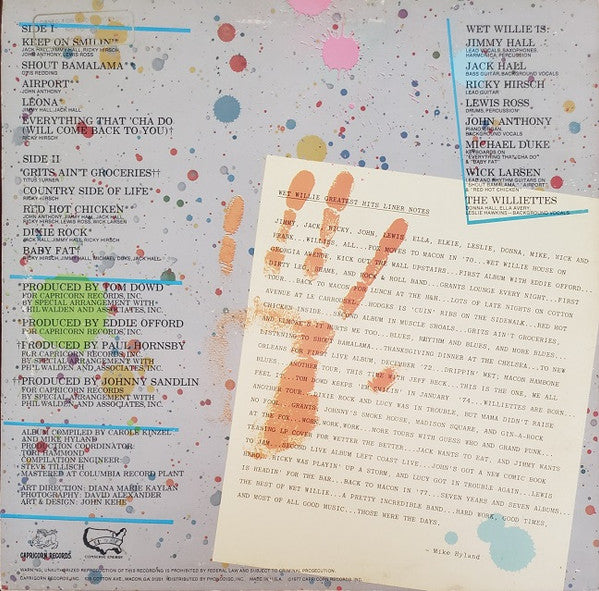 SIDE I
KEEP ON SMILIN'*
JACK HALL, JIMMY HALL, RICKY HIRSCH
JOHN ANTHONY, LEWIS ROSS
SHOUT BAMALAMA*
OTIS REDDING
AIRPORT*
JOHN ANTHONY
LEONA*
JIMMY HALL, JACK HALL
EVERYTHING THAT 'CHA DO
(WILL COME BACK TO YOU)†
RICKY HIRSCH
SIDE II
GRITS AIN'T GROCERIES††
TITUS TURNER
COUNTRY SIDE OF LIFE*
RICKY HIRSCH
RED HOT CHICKEN
JOHN ANTHONY, JIMMY HALL, JACK HALL,
RICKY HIRSCH, LEWIS ROSS, WICK LARSEN
DIXIE ROCK*
JACK HALL, JIMMY HALL, RICKY HIRSCH
BABY FAT
RICKY HIRSCH, JIMMY HALL, MICHAEL DUKE, JACK HALL
*PRODUCED BY TOM DOWD
FOR CAPRICORN RECORDS, INC.
BY SPECIAL ARRANGEMENT WITH
PHIL WALDEN AND ASSOCIATES, INC.
PRODUCED BY EDDIE OFFORD
FOR CAPRICORN RECORDS, INC.
†PRODUCED BY PAUL HORNSBY
FOR CAPRICORN RECORDS, INC.
BY SPECIAL ARRANGEMENT WITH
PHIL WALDEN AND ASSOCIATES, INC.
††PRODUCED BY JOHNNY SANDLIN
FOR CAPRICORN RECORDS, INC.
BY SPECIAL ARRANGEMENT WITH
PHIL WALDEN AND ASSOCIATES, INC.
ALBUM COMPILED BY CAROLE KINZEL
AND MIKE HYLAND
PRODUCTION COORDINATOR:
TORI HAMMOND
COMPILATION ENGINEER
STEVE TILLISCH
MASTERED AT COLUMBIA RECORD PLANT
ART DIRECTION: DIANA MARIE KAYLAN
PHOTOGRAPHY: DAVID ALEXANDER
ART & DESIGN: JOHN KEHE
WET WILLIE IS:
JIMMY HALL
LEAD VOCALS, SAXOPHONES,
HARMONICA, PERCUSSION
JACK HALL
BASS GUITAR, BACKGROUND VOCALS
RICKY HIRSCH
LEAD GUITAR
LEWIS ROSS
DRUMS, PERCUSSION
JOHN ANTHONY
PIANO, ORGAN,
BACKGROUND VOCALS
MICHAEL DUKE
KEYBOARDS ON
"EVERYTHING THAT 'CHA DO"
& "BABY FAT"
WICK LARSEN
LEAD AND RHYTHM GUITARS ON
"SHOUT BAMALAMA," "AIRPORT"
& "RED HOT CHICKEN"
THE WILLIETTES
DONNA HALL, ELLA AVERY,
LESLIE HAWKINS - BACKGROUND VOCALS
WET WILLIE GREATEST HITS LINER NOTES
JIMMY, JACK, RICKY, JOHN, LEWIS, ELLA, ELKIE, LESLIE, DONNA, MIKE, WICK AND
FRANK...WILLIES, ALL...FOX MOVES TO MACON IN '70...WET WILLIE HOUSE ON
GEORGIA AVENUE, KICK OUT THE WALL UPSTAIRS...FIRST ALBUM WITH EDDIE OFFORD...
DIRTY LEG, FRAME, AND ROCK & ROLL BAND...GRANTS LOUNGE EVERY NIGHT...FIRST
TOUR...BACK TO MACON FOR LUNCH AT THE H&H...LOTS OF LATE NIGHTS ON COTTON
AVENUE AT LE CARROUSEL...HODGES IS 'CUIN' RIBS ON THE SIDEWALK...RED HOT
CHICKEN INSIDE...SECOND ALBUM IN MUSCLE SHOALS...GRITS AIN'T GROCERIES,
AND ELMORE'S IT HURTS ME TOO...BLUES, RHYTHM AND BLUES, AND MORE BLUES...
LISTENING TO SHOUT BAMALAMA...THANKSGIVING DINNER AT THE CHELSEA...TO NEW
ORLEANS FIRST LIVE ALBUM, SUMMER '72...DRIPPIN' WET, MACON HAMBONE
BLUES, ANOTHER TOUR, THIS TIME WITH JEFF BECK...THIS IS THE ONE, WE ALL
FEEL...TOM DOWD KEEPS ON SMILIN' IN JANUARY '74...WILLIETTES ARE BORN...
ANOTHER TOUR...DIXIE ROCK AND LUCY WAS IN TROUBLE, BUT MAMA DIDN'T RAISE
NO FOOLS...GRANTS, JOHNNY'S SMOKE HOUSE, MADISON SQUARE, AND GIN-A-ROCK
AT THE FOX...WORK, WORK, WORK...MORE TOURS WITH GUESS WHO AND GRAND FUNK...
LEANING LP COVER FOR WETTER THE BETTER...JACK WANTS TO EAT, AND JIMMY WANTS
TO JAM...SECOND LIVE ALBUM LEFT COAST LIVE...JOHN'S GOT A NEW COMIC BOOK
WAS PLAYIN' UP A STORM, AND LUCY GOT IN TROUBLE AGAIN...LEWIS
IS HEADIN' FOR THE BAR...BACK TO MACON IN '77...SEVEN YEARS AND SEVEN ALBUMS...
THE BEST OF WET WILLIE...A PRETTY INCREDIBLE BAND...HARD WORK, GOOD TIMES,
AND MOST OF ALL GOOD MUSIC...THOSE WERE THE DAYS.
- Mike Hyland
CAPRICORN RECORDS
CONSERVE ENERGY
WARNING: UNAUTHORIZED REPRODUCTION OF THIS RECORDING IS PROHIBITED BY FEDERAL LAW AND SUBJECT TO CRIMINAL PROSECUTION.
CAPRICORN RECORDS, INC. 535 COTTON AVE., MACON, GA 31201. DISTRIBUTED BY PHONODISC, INC. MADE IN U.S.A. ©1977 CAPRICORN RECORDS, INC.